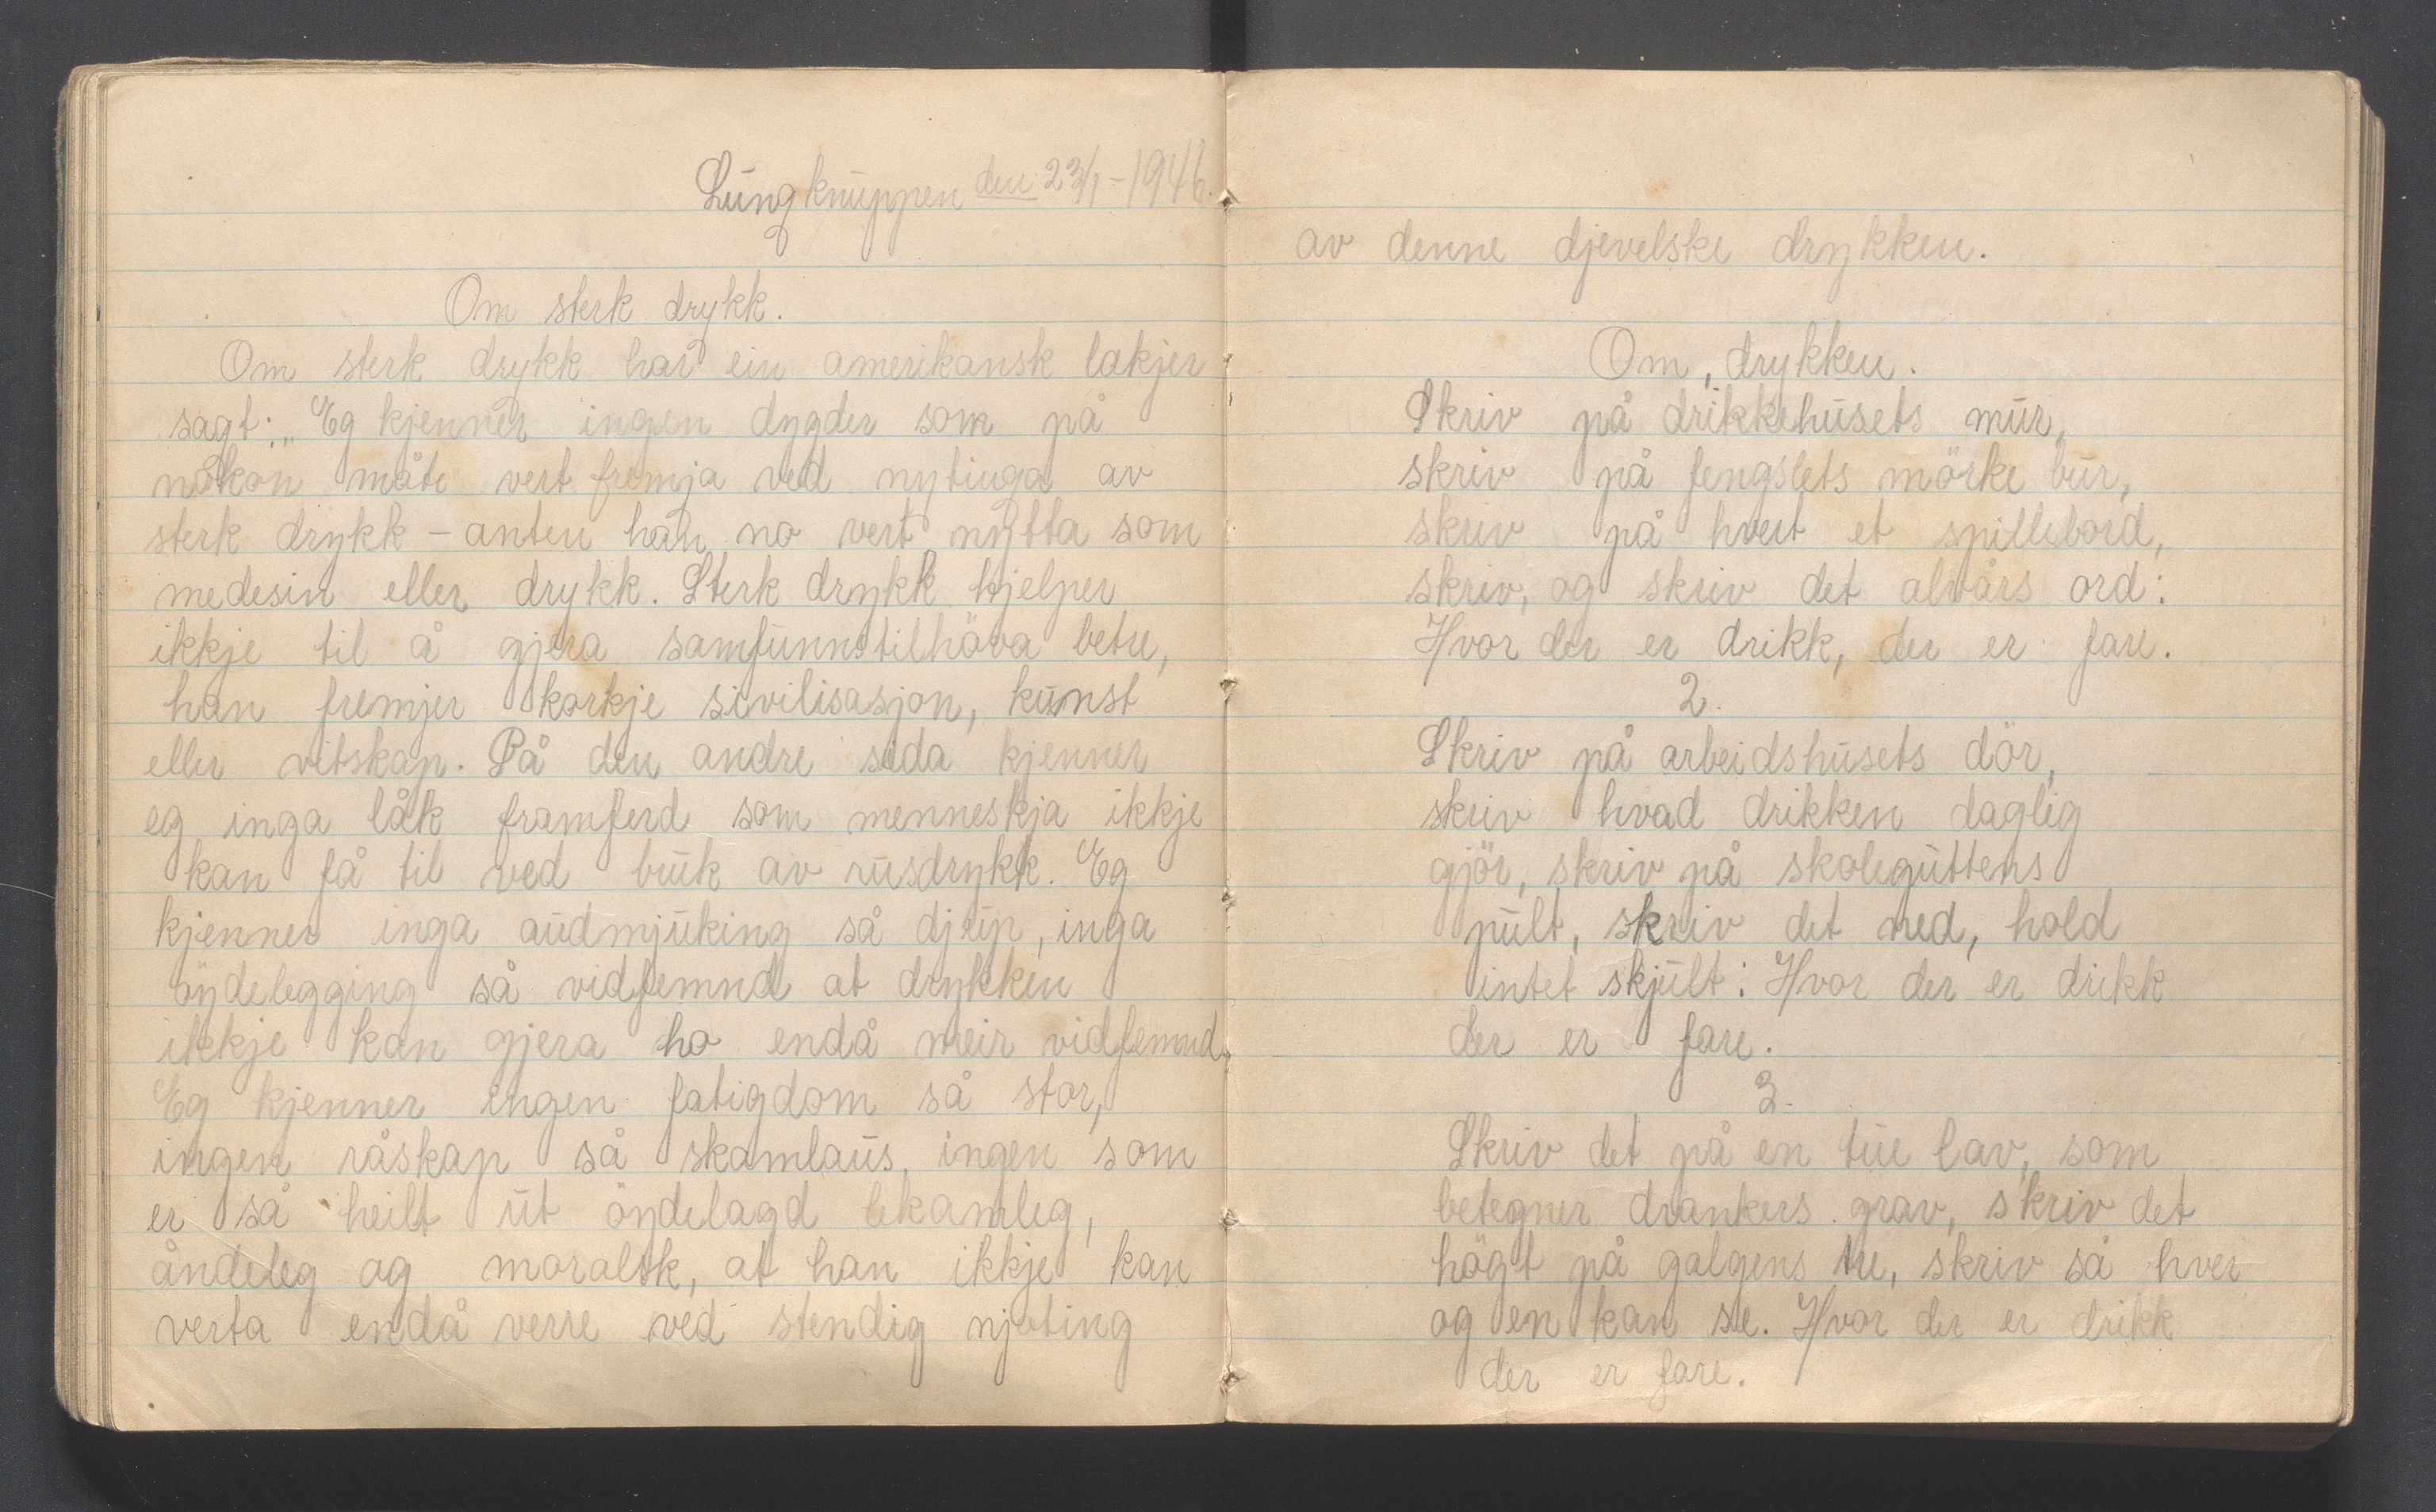 Lungknuppen den 23/1-1946.
Om sterk drykk.
Om sterk drykk har ein amerikansk lækjer
sagt: „Eg kjenner ingen dygder som på
nokon måte vert fremja ved nytinga av
sterk drykk - anten han no vert nytta som
medesin eller drykk. Sterk drykk hjelper
ikkje til å gjera samfunnstilhöva betre,
han fremjer korkje sivilisasjon, kunst
eller vitskap. På den andre sida kjenner
eg inga låk framferd som menneskja ikkje
kan få til ved bruk av rusdrykk. Eg
kjenner inga audmjuking så djup, inga
öydelegging så vidfemnd at drykken
ikkje kan gjera ho endå meir vidfemnd.
Eg kjenner ingen fatigdom så stor,
ingen råskap så skamlaus, ingen som
er så heilt ut öydelagd lekamleg,
åndeleg og moralsk, at han ikkje kan
verta endå verre ved stendig njoting
av denne djevelske drykken.
Om drykken.
Skriv på drikkehusets mur,
skriv på fengslets mörke bur,
skriv på hvert et spillebord,
skriv, og skriv det alvårs ord:
Hvor der er drikk, der er fare.
2.
Skriv på arbeidshusets dör,
skriv hvad drikken daglig
gjör, skriv på skoleguttens
pult, skriv det med, hold
intet skjult: Hvor der er drikk
der er fare.
3.
Skriv det på en tue lav, som
betegner drankers grav, skriv det
högt på galgens tre, skriv så hver
og en kan se. Hvor der er drikk
der er fare.